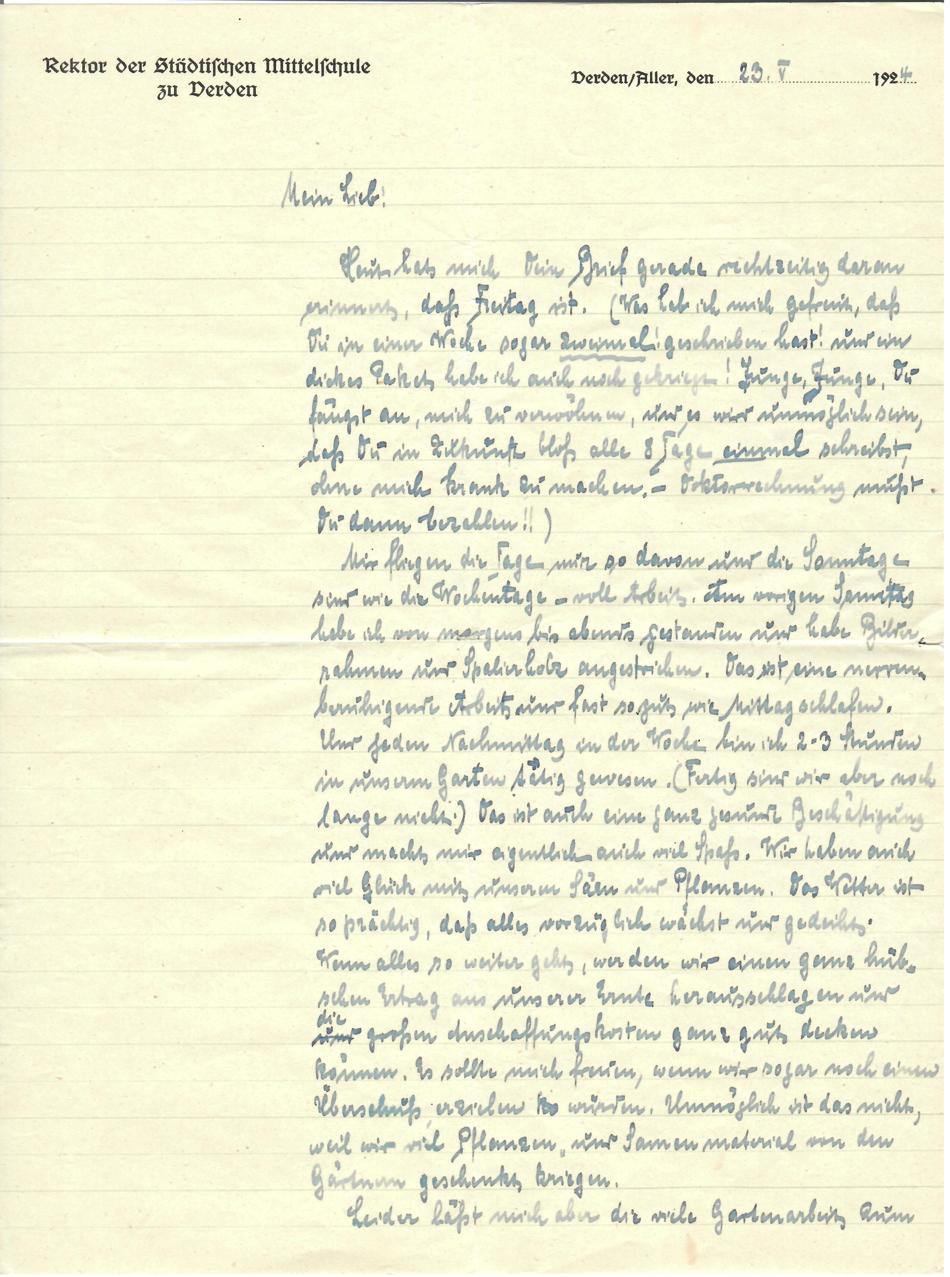 Rektor der Städtischen Mittelschule
zu Verden
Verden/Aller, den 23. V 1924
Mein Lieb!
Heut hats mich Dein Brief gerade rechtzeitig daran
erinnert, daß Freitag ist. (Was hab ich mich gefreut, daß
Du in einer Woche sogar zweimal! geschrieben hast! und ein
dickes Paket habe ich auch noch gekriegt! Junge, Junge, Du
fängst an, mich zu verwöhnen, und es wird unmöglich sein,
daß Du in Zukunft bloß alle 8 Tage einmal schreibst,
ohne mich krank zu machen. – Doktorrechnung mußt
Du dann bezahlen!!)
Mir fliegen die Tage nur so davon und die Sonntage
sind wie die Wochentage – voll Arbeit. Am vorigen Sonntag
habe ich von morgens bis abends gestanden und habe Bilder-
rahmen und Spalierholz angestrichen. Das ist eine nerven-
beruhigende Arbeit und fast so gut wie Mittagschlafen.
Und jeden Nachmittag in der Woche bin ich 2-3 Stunden
in unserm Garten tätig gewesen. (Fertig sind wir aber noch
lange nicht.) Das ist auch eine ganz gesunde Beschäftigung
und macht mir eigentlich auch viel Spaß. Wir haben auch
viel Glück mit unserem Säen und Pflanzen. Das Wetter ist
so prächtig, daß alles vorzüglich wächst und gedeiht.
Wenn alles so weiter geht, werden wir einen ganz hüb-
schen Ertrag aus unserer Ernte herausschlagen und
die
und großen Anschaffungskosten ganz gut decken
können. Es sollte mich freuen, wenn wir sogar noch einen
Überschuß erzielen würden. Unmöglich ist das nicht,
weil wir viel Pflanzen- und Samenmaterial von den
Gärtnern geschenkt kriegen.
Leider läßt mich aber die viele Gartenarbeit kaum